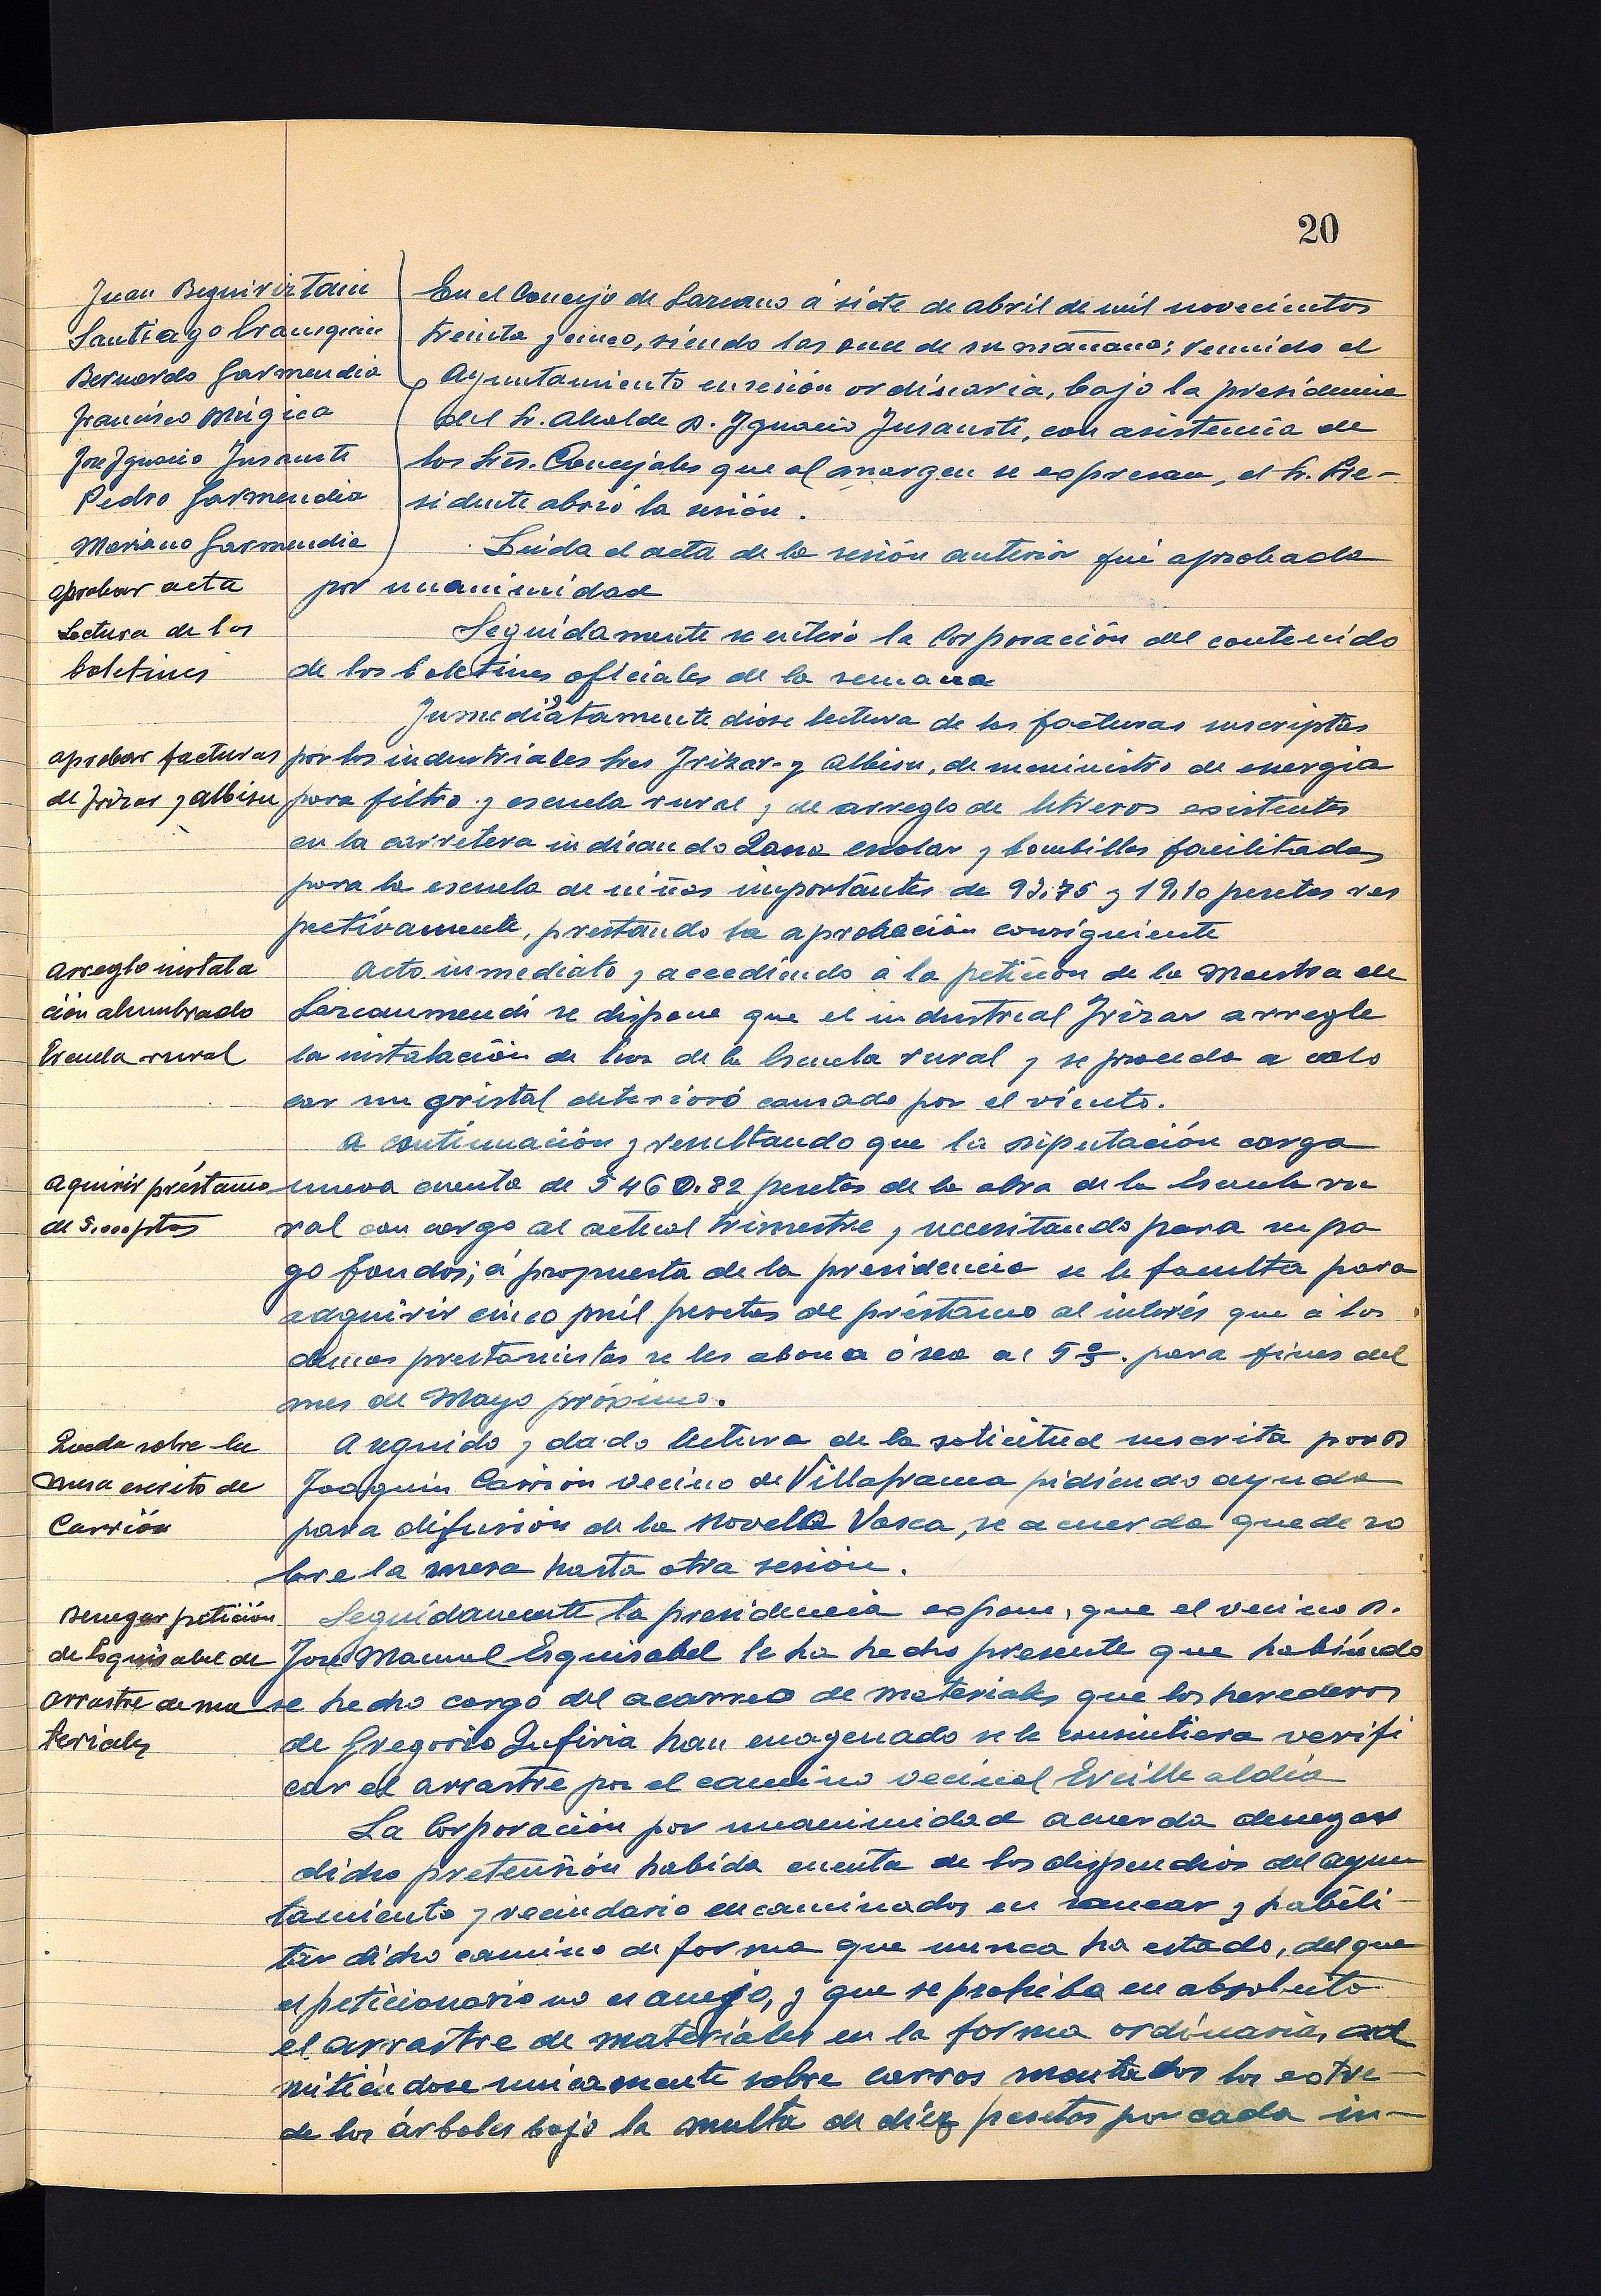 20
Juan Beguiristain
Santiago Aramguin
Bernardo Garmendia
Francisco Múgica
Jose Ygnacio Insausti
Pedro Garmendia
Mariano Garmendia
En el Concejo de Lazcano á siete de abril de mil novecientos
treinta y cinco, siendo las once de su mañana; reunido el
Ayuntamiento en sesión ordinaria, bajo la presidencia
del Sr. Alcalde D. Ygnacio Insausti, con asistencia de
los Sres. Concejales que al margen se expresan, el Sr. Pre-
sidente abrió la sesión.
aprobar acta
Leida el acta de la sesión anterior fué aprobada
por unanimidad
Lectura de los
boletines
Seguidamente se enteró la Corporación del contenido
de los boletines oficiales de la semana
aprobar facturas
de Irizar y albisu
Inmediatamente diose lectura de las facturas suscriptas
por los industriales Sres Irizar y Albisu, de suministro de energia
para filtro y escuela rural y de arreglo de letreros existentes
en la carretera indicando Zona escolar y bombillas facilitadas
para la escuela de niñas importantes de 93,75 y 19,10 pesetas res
pectivamente, prestando la aprobación consiguiente
arreglo instala
ción alumbrado
Escuela rural
Acto inmediato y accediendo á la petición de la Maestra de
Lazcaumendi se dispone que el industrial Irizar arregle
la instalación de luz de la Escuela rural y se proceda a colo
car un cristal deterioró causado por el viento.
aquirir préstamo
de 5.000 ptas
A continuación y resultando que la Diputación carga
nueva cuenta de 5460.82 pesetas de la obra de la Escuela ru
ral con cargo al actual trimestre y necesitando para su pa
go fondos; á propuesta de la presidencia se le faculta para
adquirir cinco mil pesetas de préstamo al interés que á los
demas prestamistas se les abona ó sea al 5 %. para fines del
mes de Mayo próximo.
Queda sobre la
mesa escrito de
Carrión
A seguido y dado lectura de la solicitud suscrita por D
Joaquin Carrión vecino de Villafranca pidiendo ayuda
para difusión de la Novela Vasca, se acuerda quede so
bre la mesa hasta otra sesión.
Denegar petición
de Esquisabel de
arrastre de ma
teriales
Seguidamente la presidencia expone, que el vecino D.
José Manuel Esquisabel le ha hecho presente que habiendo
se hecho cargo del acarreo de materiales que los herederos
de Gregorio Zufiria han enagenado se le consintiera verifi
car el arrastre por el camino vecinal Ercille aldea
La Corporación por unanimidad acuerda denegar
dicha pretensión habida cuenta de los dispendios del ayun
tamiento y vecindario encaminados en sanear y habili-
tar dicho camino de forma que nunca ha estado, del que
el peticionario no es anejo, y que se prohiba en absoluto
el arrastre de materiales en la forma ordinaria, ad
mitiéndose unicamente sobre carros montados los extre-
de los árboles bajo la multa de diez pesetas por cada in-